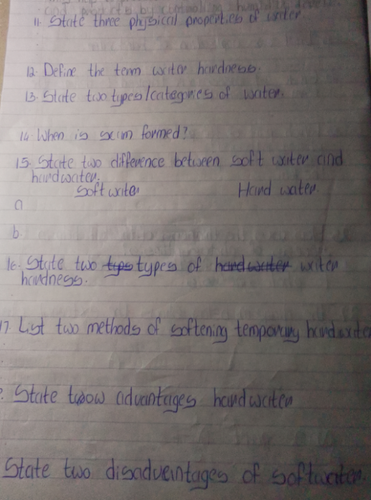 11. State three physical properties of water
12. Define the term water hardness.
13. State two types/categories of water.
14. When is scum formed?
15. State two difference between soft water and
hardwater.
Soft water Hard water
a
b
16. State two types types of hardwater water
hardness.
17. List two methods of softening temporary hardwater
State twoow advantages hardwater
State two disadvantages of softwater.